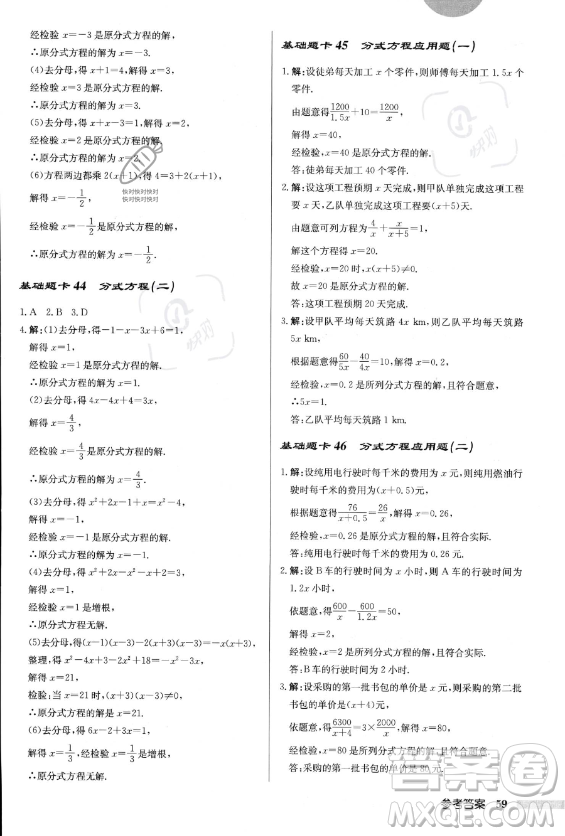 经检验 x=3 是原分式方程的解.
∴原分式方程的解为 x=3.
(4)去分母,得 x+1=4. 解得 x=3.
经检验 x=3 是原分式方程的解.
∴原分式方程的解为 x=3.
(5)去分母,得
经检验 x=2 是原分式方程的解.
∴原分式方程的解为 x=2.
(6)方程两边都乘 2(x-1),得 4=3+2(x-1).
解得 x=-1/2,
经检验 x=-1/2 是原分式方程的解,
∴原分式方程的解为 x=-1/2.
基础题卡 44 分式方程(二)
1.A 2.B 3.D
4.解:(1)去分母,得-1-3x+6=1.
解得 x=1,
经检验 x=1 是原分式方程的解.
∴原分式方程的解为 x=1.
(2)去分母,得 4x-4=3x.
解得 x=4/3,
经检验 x=4/3 是原分式方程的解,
∴原分式方程的解为 x=4/3.
(3)去分母,得 x²+2x-1=x²-2x.
解得 x=1/4,
经检验 x=1/4 是原分式方程的解.
∴原分式方程的解为 x=1/4.
(4)去分母,得 x²+2x+1-4=x²-1.
解得 x=1.
经检验 x=1 是增根,
∴原分式方程无解.
(5)去分母,得(x-1)(x-2)+18=x(x-2).
整理,得 x²-3x+2+18=x²-2x,
解得 x=21,
检验:当 x=21 时,x(x-1)≠0,
∴原分式方程的解为 x=21.
(6)去分母,得 6x-2+3x=1.
解得 x=1/3,经检验 x=1/3 是增根,
∴原分式方程无解.
基础题卡 45 分式方程应用题(一)
1.解:设徒弟每天加工 x 个零件,则师傅每天加工 1.5x 个
零件.
由题意得1200/1.5x+10=1200/x,
解得 x=40.
经检验,x=40 是原分式方程的解.
答:徒弟每天加工 40 个零件.
2.解:设这项工程预期 x 天完成,则甲队单独完成这项工程
需要 x 天,乙队单独完成这项工程需要(x+5)天.
由题意可列方程为4/x+x/(x+5)=1.
解这个方程得 x=20.
经检验,x=20 是原方程的解.
故 x=20.
答:这项工程预期 20 天完成.
3.解:设甲队平均每天筑路 4x km,则乙队平均每天筑路
5x km,
根据题意得60/5x-40/4x=10.
解得 x=0.2.
经检验,x=0.2 是所列分式方程的解且符合题意,
∴5x=1.
答:乙队平均每天筑路 1 km.
基础题卡 46 分式方程应用题(二)
1.解:设纯用电行驶时每千米的费用为 x 元,则纯用燃油行
驶时每千米的费用为(x+0.5)元.
根据题意得76/(x+0.5)=26/x,解得 x=0.26,
经检验,x=0.26 是原方程的解,且符合实际.
答:纯用电行驶时每千米的费用为 0.26 元.
2.解:设 B 车的行驶时间为 x 小时,则 A 车的行驶时间为
1.2x 小时,
依题意,得600/x-600/1.2x=50,
解得 x=2,
经检验,x=2 是所列方程的解,且符合题意.
答:B 车的行驶时间为 2 小时.
3.解:设采购的第一批书包的单价是 x 元,则采购的第二批
书包的单价是(x+4)元,
依题意,得6300/(x+4)=3×2000/x,
解得 x=80,
经检验,x=80 是所列分式方程的解,且符合实际.
答:采购的第一批书包的单价是 80 元.
参考答案 59